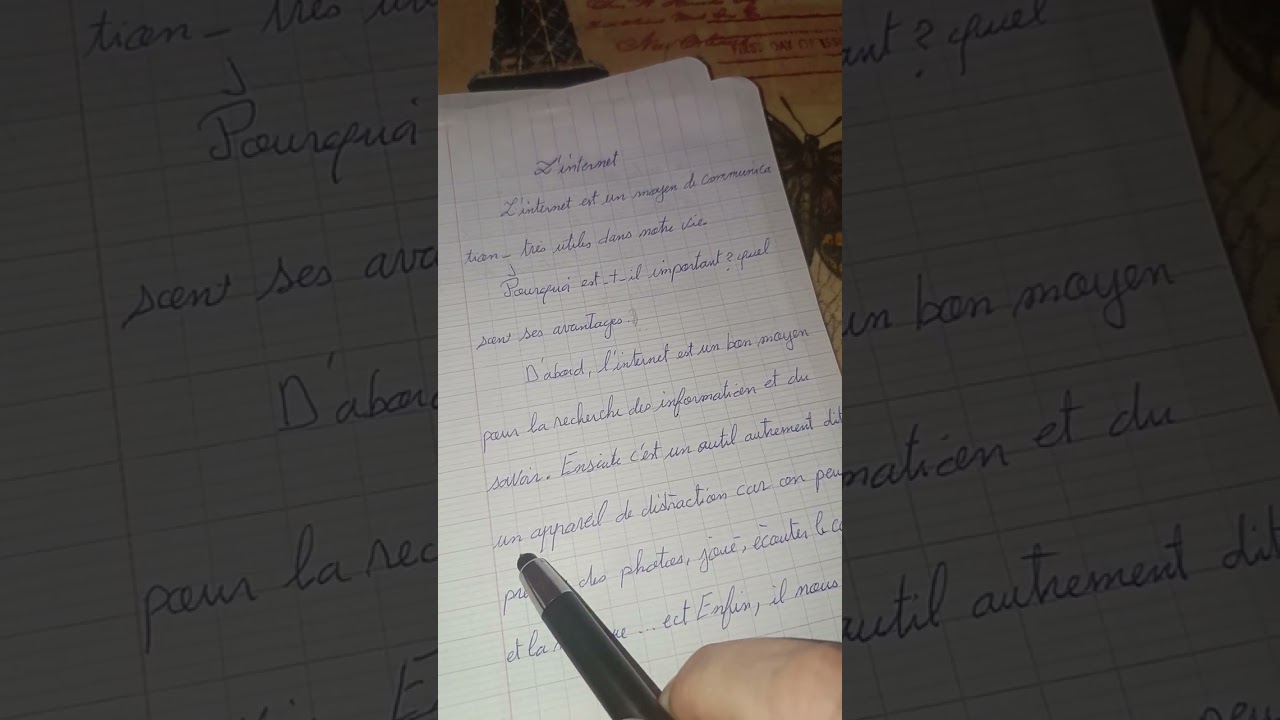 L'internet
L'internet est un moyen de communica
tion_ très utiles dans notre vie.
Pourquoi est_t_il important ? quel
sont ses avantages.
D'abord, l'internet est un bon moyen
pour la recherche des information et du
savoir. Ensuite c'est un outil autrement dit
un appareil de distraction car on peu
des photos, joué, écouter le
et la ... ect Enfin, il nous
FIRST DAY OF ISS